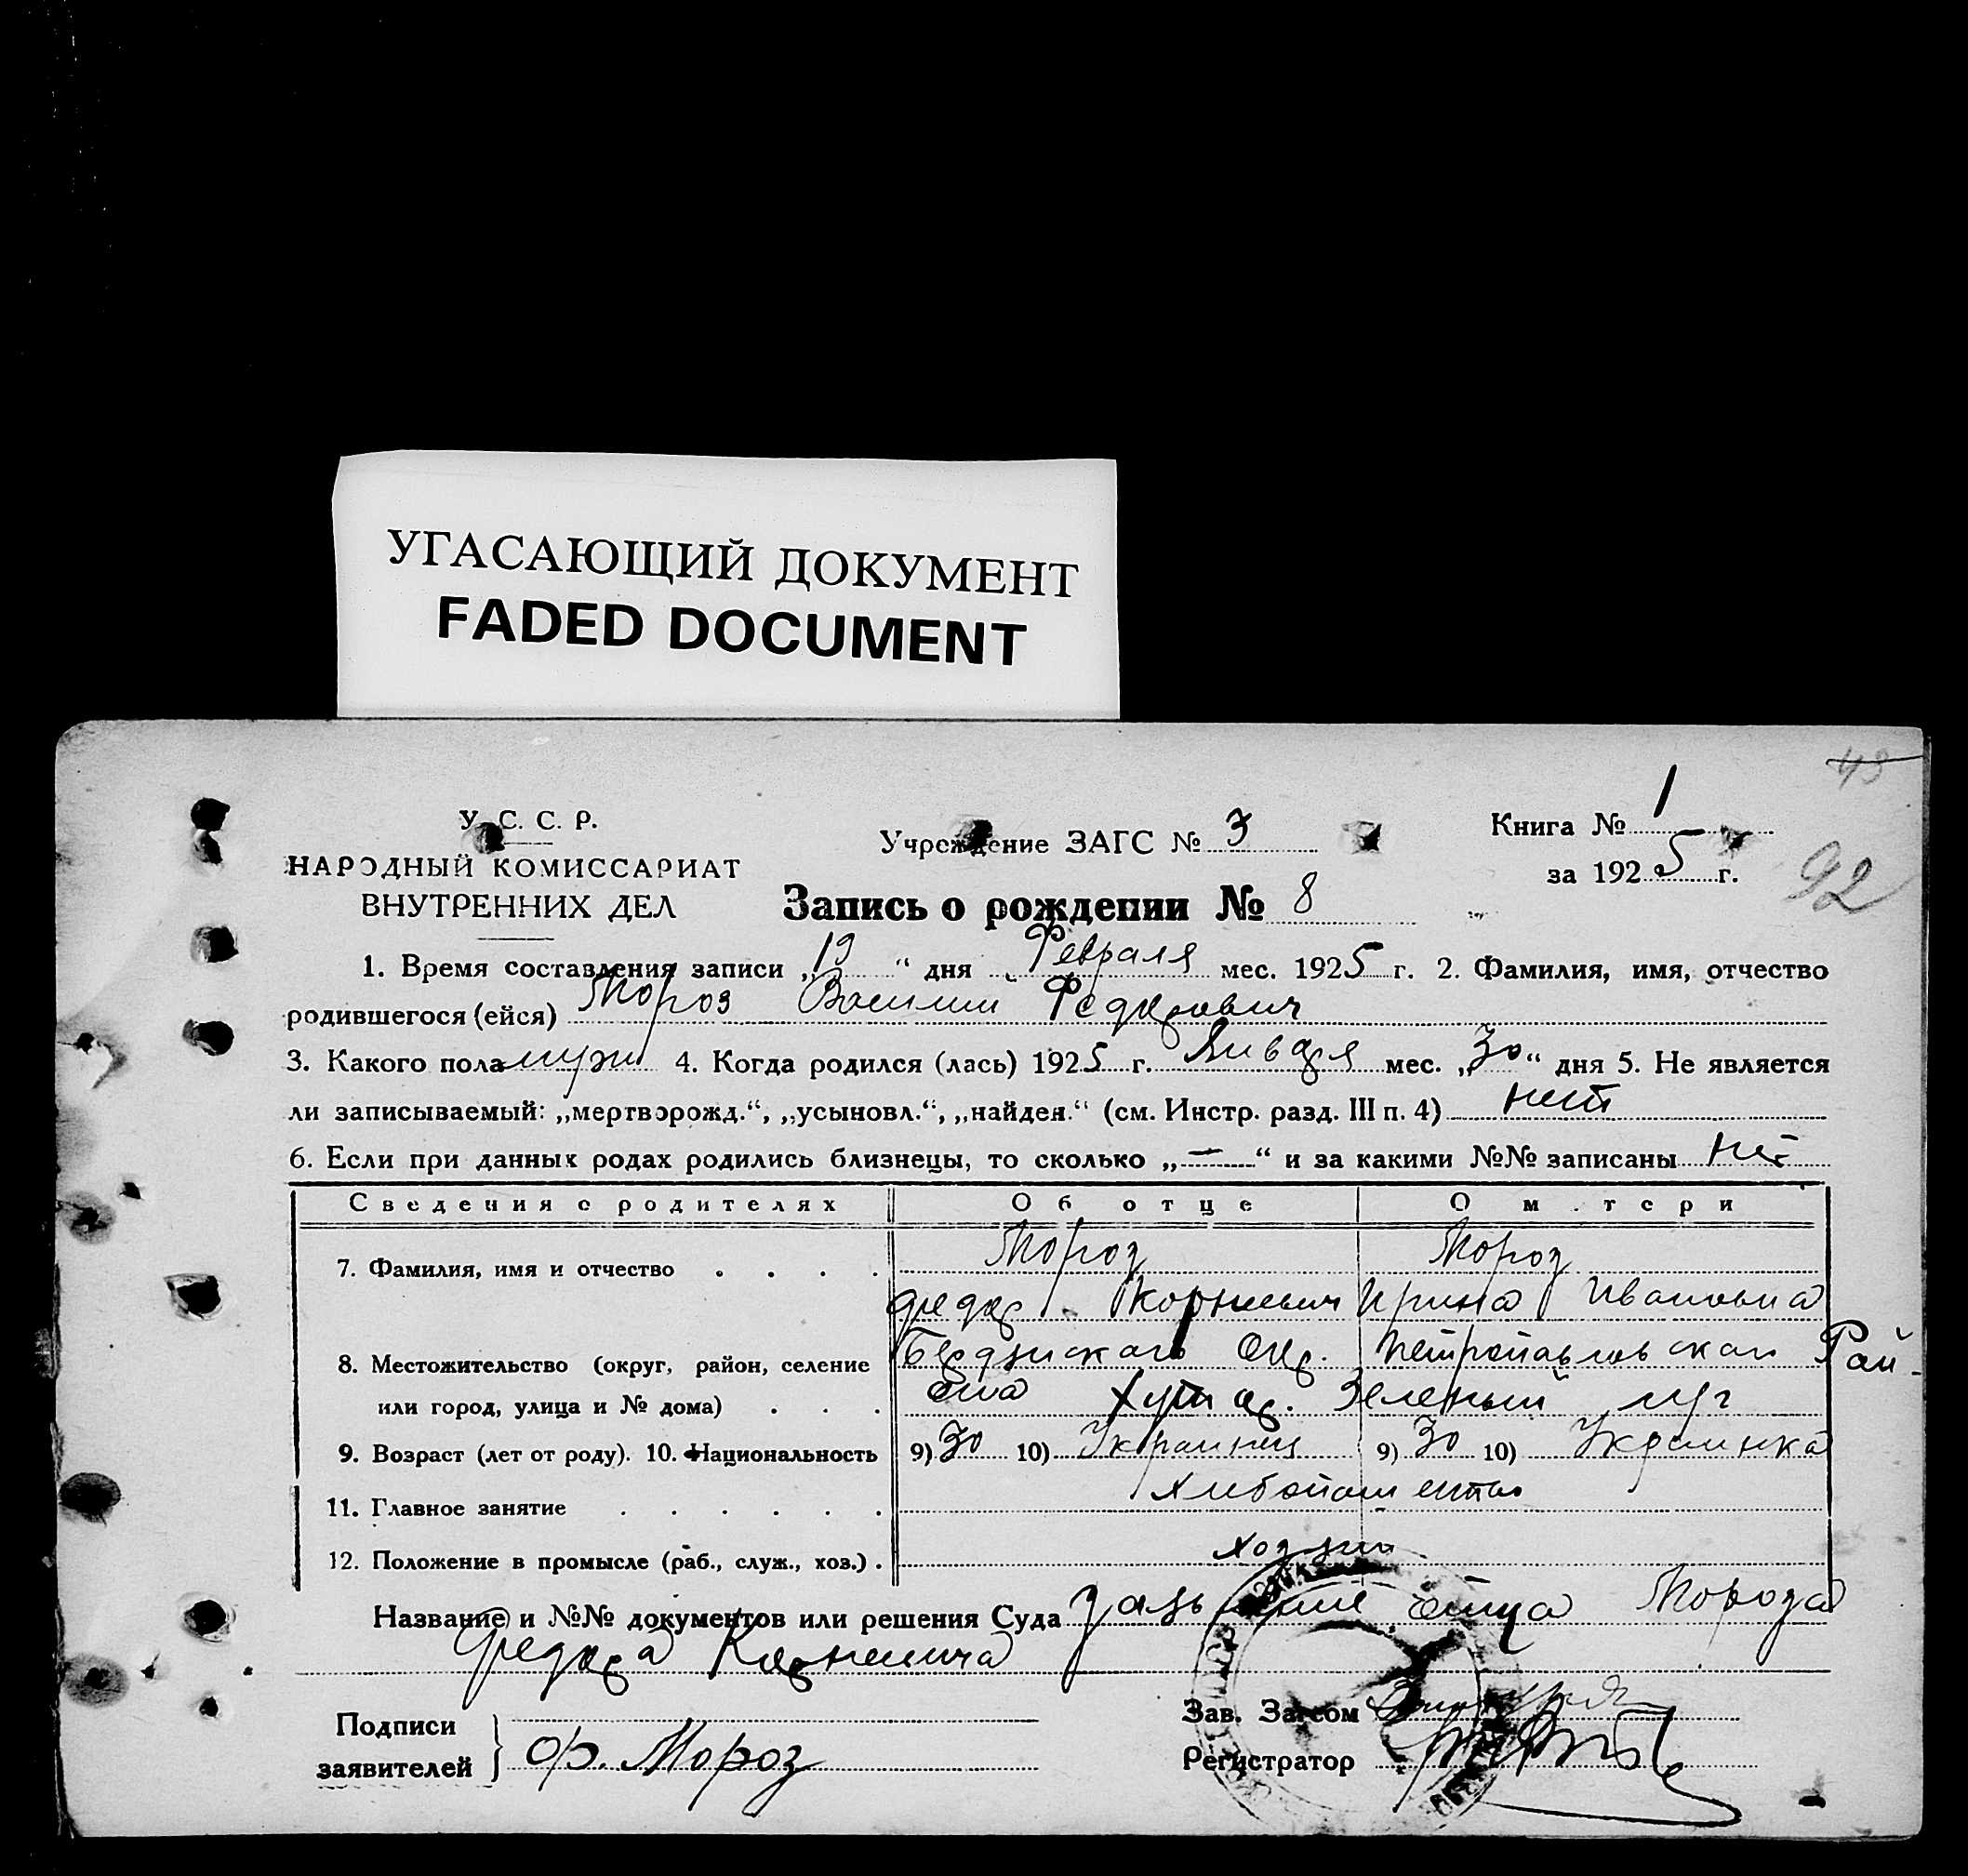 УГАСАЮЩИЙ ДОКУМЕНТ
FADED DOCUMENT
43
У. С. С. Р.
НАРОДНЫЙ КОМИССАРИАТ
ВНУТРЕННИХ ДЕЛ
Учреждение ЗАГС № 3
Книга № 1
за 1925 г.
92
Запись о рождении № 8
1. Время составления записи „19“ дня Февраля мес. 1925 г. 2. Фамилия, имя, отчество
родившегося (ейся) Мороз Василий Федорович
3. Какого пола муж 4. Когда родился (лась) 1925 г. Января мес. „30“ дня 5. Не является
ли записываемый: „мертворожд.“, „усыновл.“, „найден.“ (см. Инстр. разд. III п. 4) нет
6. Если при данных родах родились близнецы, то сколько „—“ и за какими №№ записаны нет
Сведения о родителях Об отце О матери
7. Фамилия, имя и отчество . . . . Мороз Мороз
Федор Корнеевич Ирина Ивановна
8. Местожительство (округ, район, селение Окр. Петропавловскаи Рай-
или город, улица и № дома) . . . она Хутор. Зеленый луг
9. Возраст (лет от роду). 10. Национальность 9) 30 10) Украинец 9) 30 10) Украинка
11. Главное занятие . . . . . .
12. Положение в промысле (раб., служ., хоз.) . хозяин
Название и №№ документов или решения Суда отца Мороза
Федора Корнеевича
Подписи
заявителей
Ф. Мороз
Зав. Загсом
Регистратор